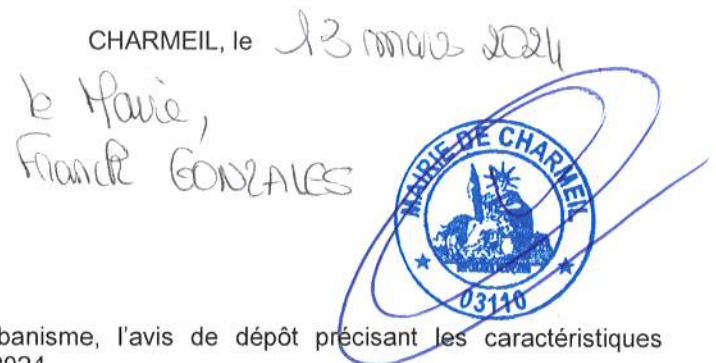 CHARMEIL, le 13 mars 2024
le Maire,
Franck GONZALES
MAIRIE DE CHARMEIL
03110
banisme, l'avis de dépôt précisant les caractéristiques
2024